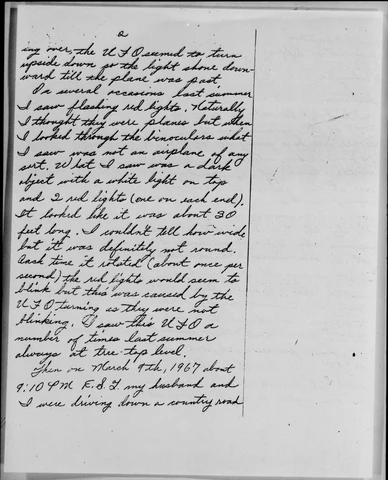 2
ing over, the UFO seemed to turn
upside down so the light shone down-
ward till the plane was past.
On several occasions last summer
I saw flashing red lights. Naturally
I thought they were planes but when
I looked through the binoculars what
I saw was not an airplane of any
sort. What I saw was a dark
object with a white light on top
and 2 red lights (one on each end).
It looked like it was about 30
feet long. I couldn't tell how wide
but it was definitely not round.
Each time it rotated (about once per
second) the red lights would seem to
blink but this was caused by the
UFO turning as they were not
blinking. I saw this UFO a
number of times last summer
always at tree-top level.
Then on March 9th, 1967 about
9:10 PM E.S.T. my husband and
I were driving down a country road